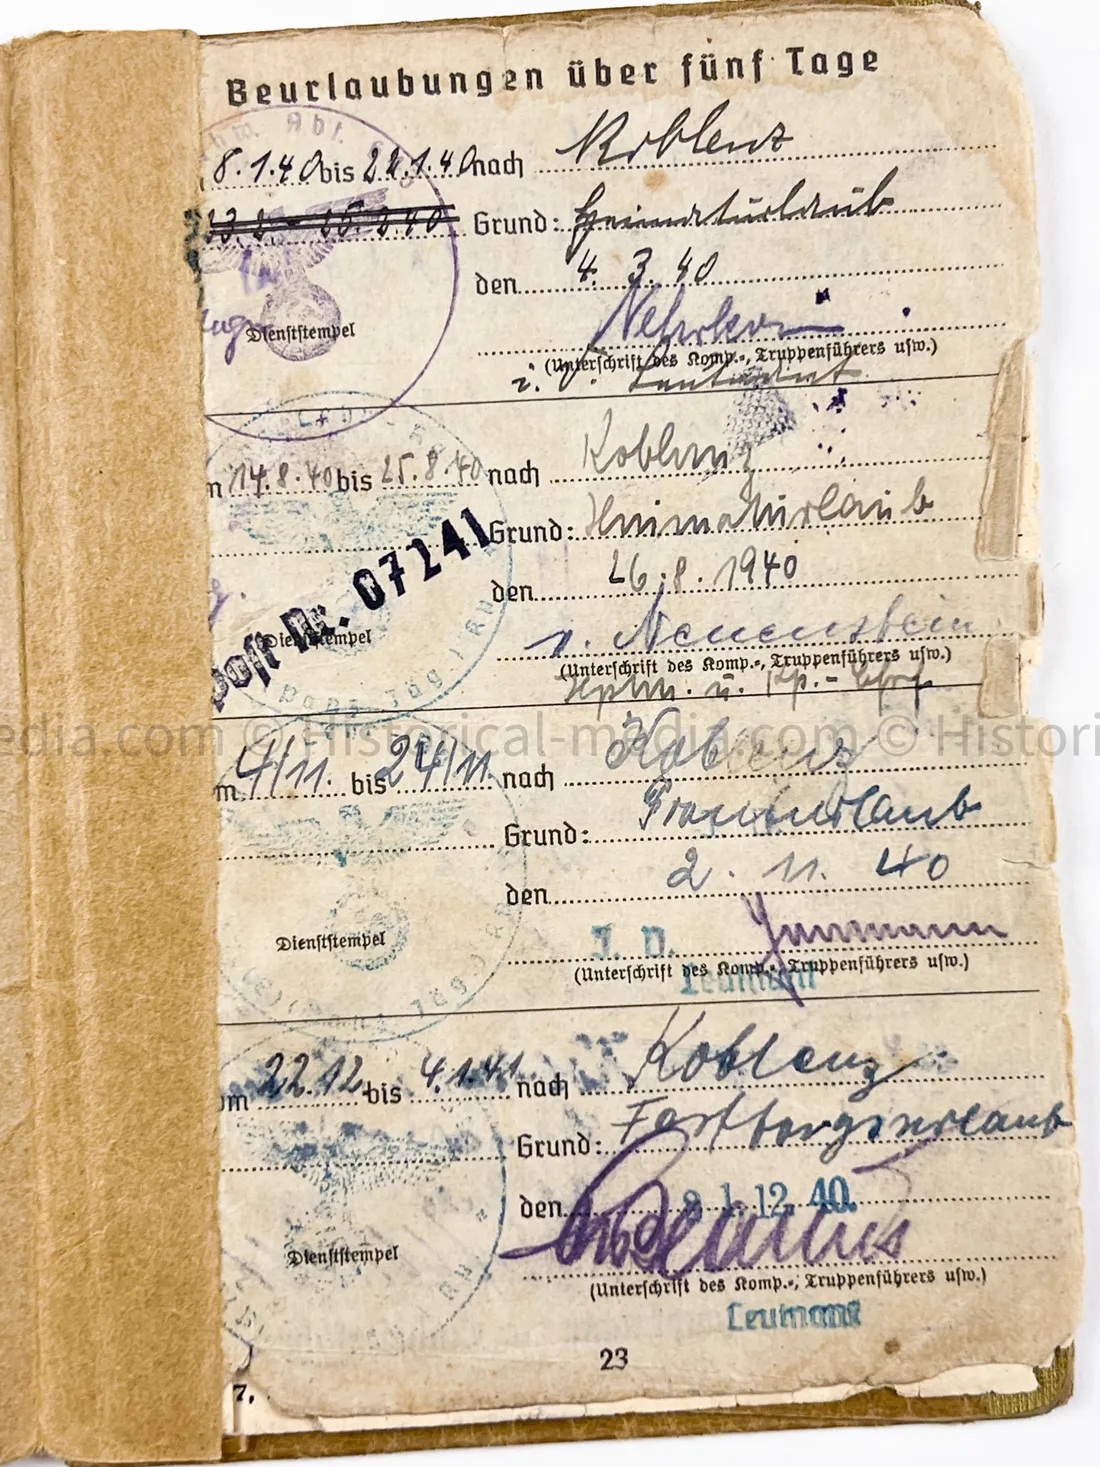 Beurlaubungen über fünf Tage
8.1.40 bis 22.1.40 nach Koblenz
Grund: Heimaturlaub
den 4. 3. 40
Dienststempel
(Unterschrift des Komp.-, Truppenführers usw.)
i. V. Leutnant
14.8.40 bis 25.8.40 nach Koblenz
Grund: Heimaturlaub
den 26.8.1940
Post Nr. 07241
Dienststempel
v. Neuenstein
(Unterschrift des Komp.-, Truppenführers usw.)
Hptm. u. Kp.-Chef
© Historical-media.com © Histori
m 4/11. bis 24/11. nach Koblenz
Grund:
den 2. 11. 40
Dienststempel
J. V.
(Unterschrift des Komp.-, Truppenführers usw.)
Leutnant
om 22.12. bis 4.1.41. nach Koblenz
Grund: Festtagsurlaub
den 21.12.40.
Dienststempel
(Unterschrift des Komp.-, Truppenführers usw.)
Leutnant
23
7.